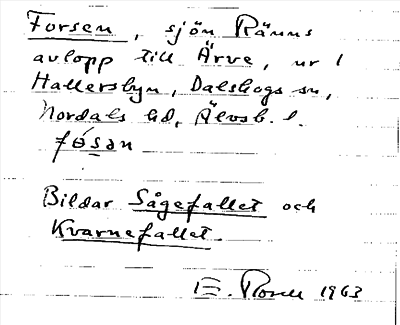 Forsen, sjön Ränns
avlopp till Ärve, ur l
Hallersbyn, Dalskogs sn,
Nordals hd, Älvsb. l.
fósan
Bildar Sågefallet och
Kvarnefallet.
E. 1963